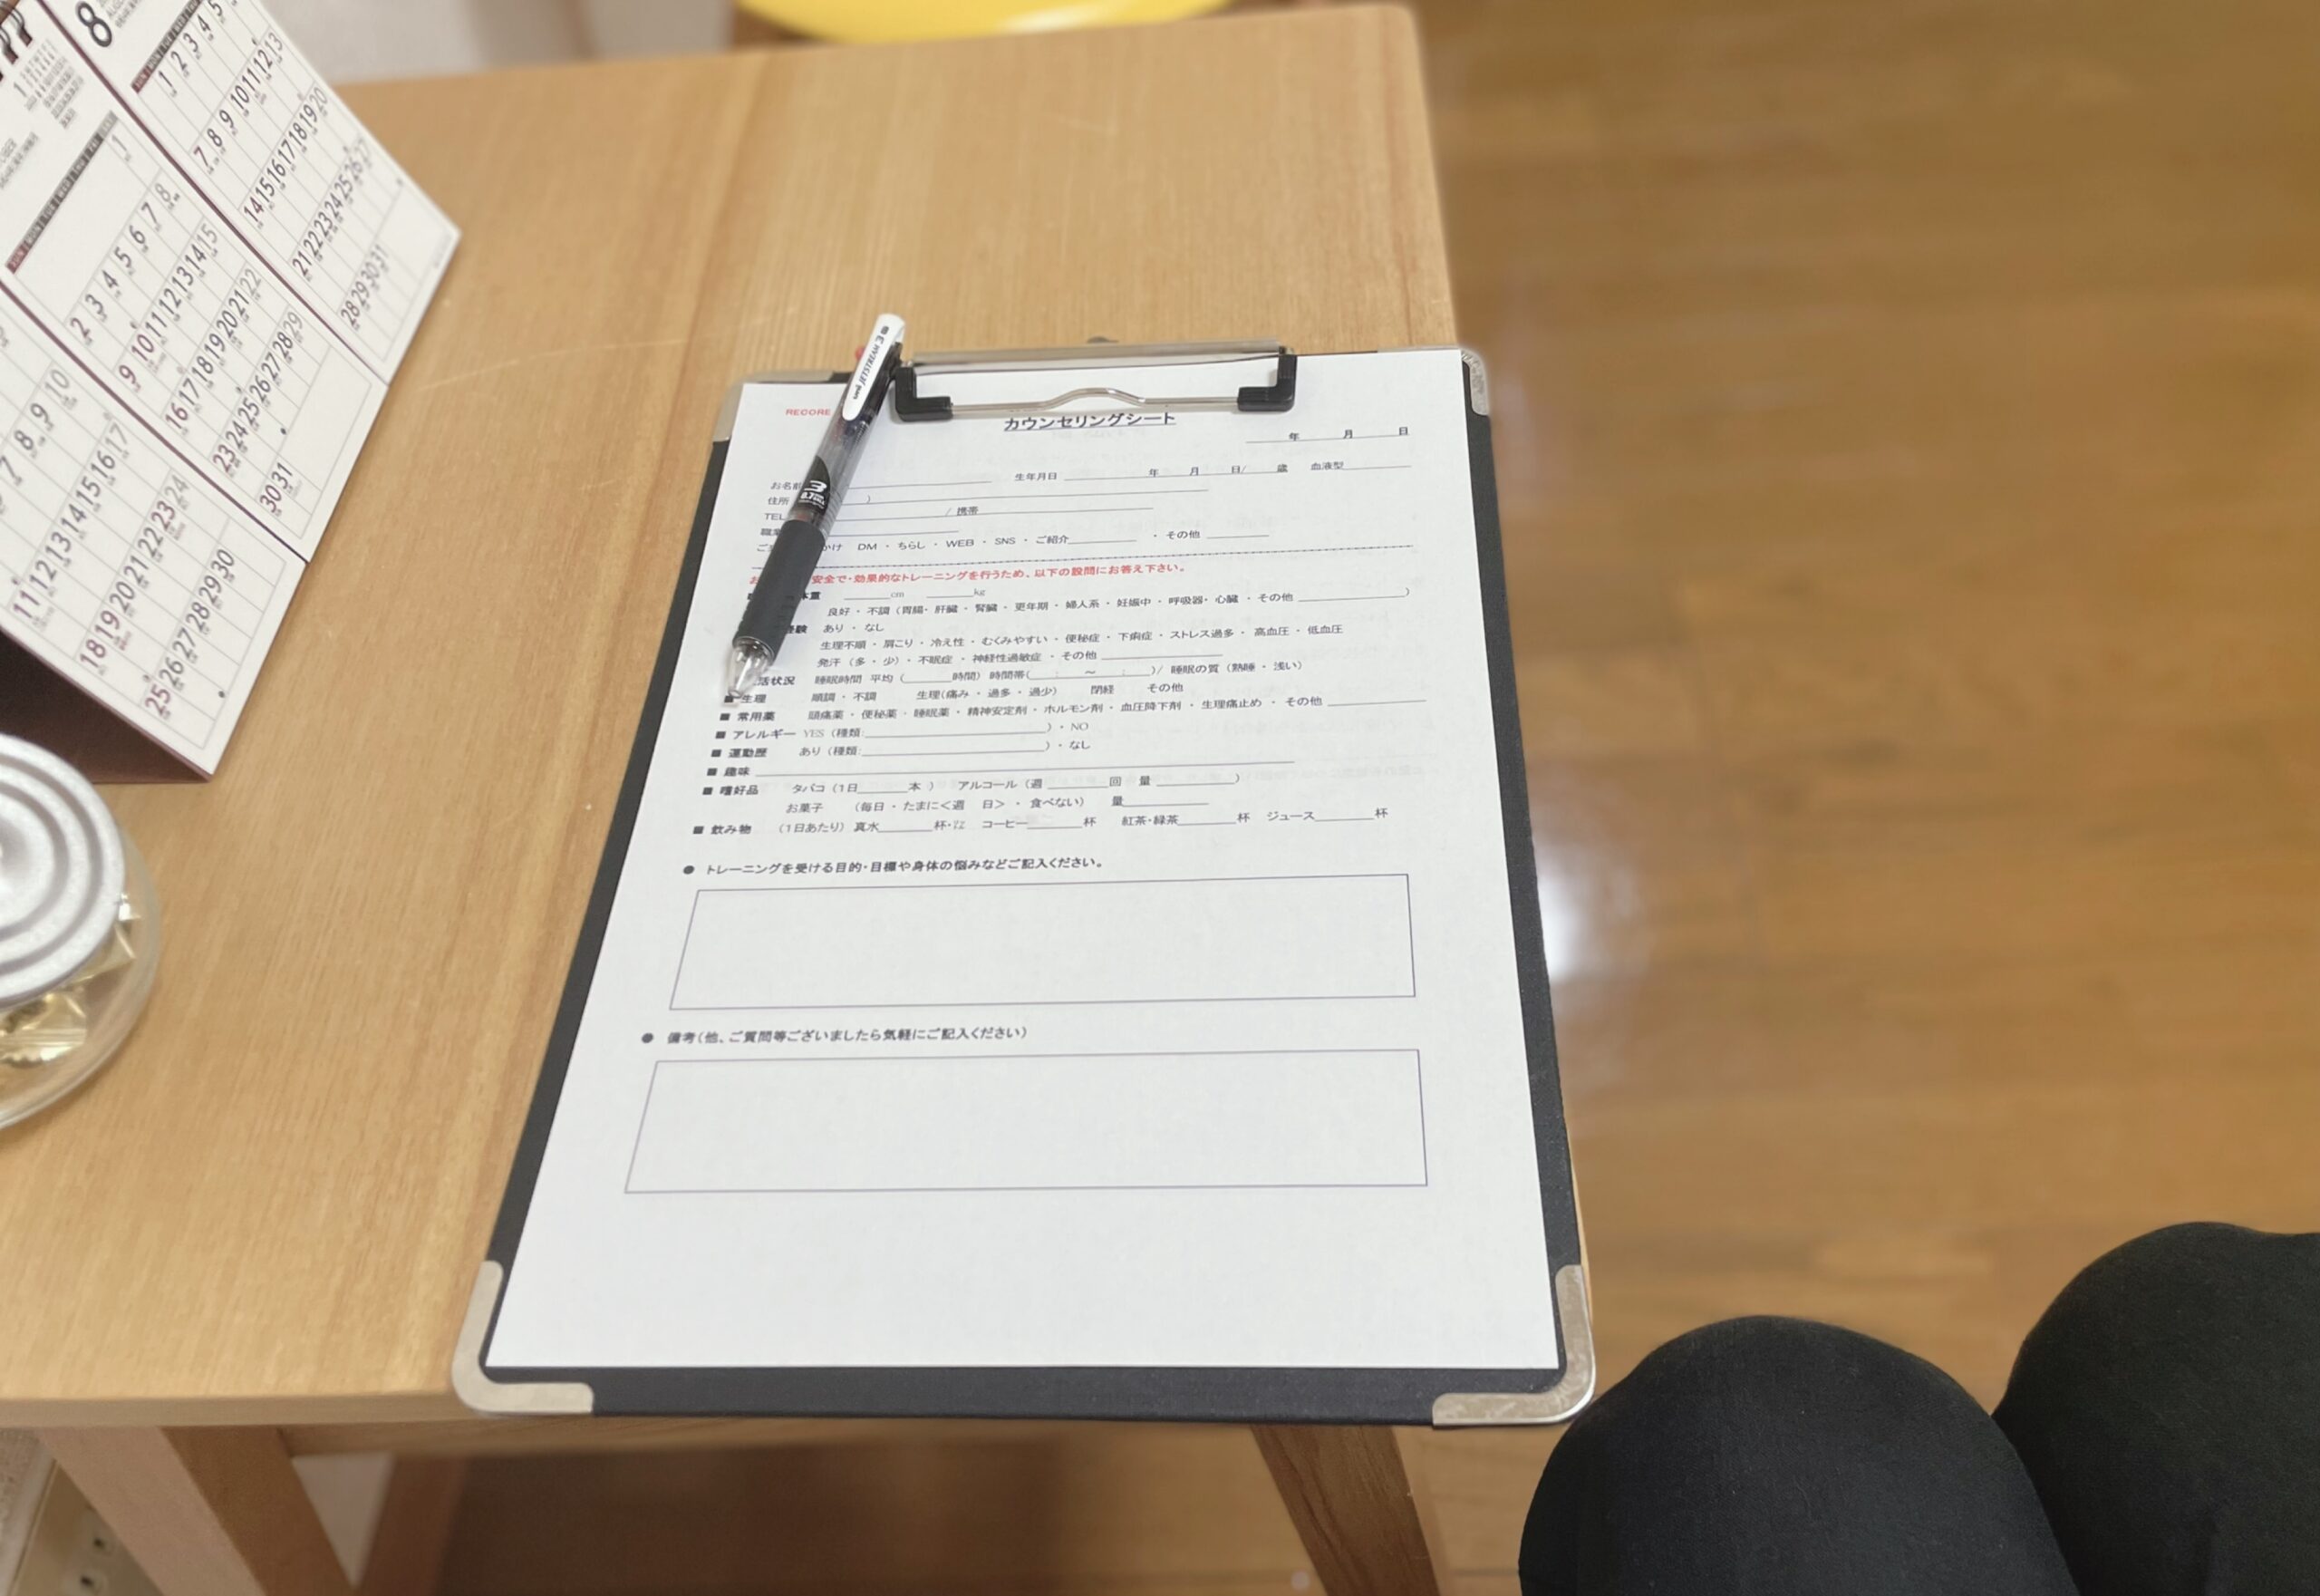 8
1 2 3 4 5
7 8 9 10 11 12 13
14 15 16 17 18 19 20
21 22 23 24 25 26 27
28 29 30 31
1
2 3 4 5 6 7 8
9 10 11 12 13 14 15
16 17 18 19 20 21 22
23 24 25 26 27 28 29
30 31
7 8 9 10
11 12 13 14 15 16 17
18 19 20 21 22 23 24
25 26 27 28 29 30
uni JETSTREAM 3
3
0.7
RECORE
カウンセリングシート
年 月 日
お名前 生年月日 年 月 日/ 歳 血液型
住所 )
TEL / 携帯
職業
かけ DM ・ ちらし ・ WEB ・ SNS ・ ご紹介 ・ その他
安全で・効果的なトレーニングを行うため、以下の設問にお答え下さい。
体重 cm kg
良好 ・ 不調 (胃腸・ 肝臓 ・ 腎臓 ・ 更年期 ・ 婦人系 ・ 妊娠中 ・ 呼吸器・ 心臓 ・ その他 )
経験 あり ・ なし
生理不順 ・ 肩こり ・ 冷え性 ・ むくみやすい ・ 便秘症 ・ 下痢症 ・ ストレス過多 ・ 高血圧 ・ 低血圧
発汗 (多 ・ 少) ・ 不眠症 ・ 神経性過敏症 ・ その他
活状況 睡眠時間 平均 ( 時間) 時間帯( : ～ : )/ 睡眠の質 (熟睡 ・ 浅い)
■ 生理 順調 ・ 不調 生理(痛み ・ 過多 ・ 過少) 閉経 その他
■ 常用薬 頭痛薬 ・ 便秘薬 ・ 睡眠薬 ・ 精神安定剤 ・ ホルモン剤 ・ 血圧降下剤 ・ 生理痛止め ・ その他
■ アレルギー YES (種類: ) ・ NO
■ 運動歴 あり (種類: ) ・ なし
■ 趣味
■ 嗜好品 タバコ (1日 本 ) アルコール (週 回 量 )
お菓子 (毎日 ・ たまに＜週 日＞ ・ 食べない) 量
■ 飲み物 (1日あたり) 真水 杯・㍑ コーヒー 杯 紅茶・緑茶 杯 ジュース 杯
● トレーニングを受ける目的・目標や身体の悩みなどご記入ください。
● 備考(他、ご質問等ございましたら気軽にご記入ください)